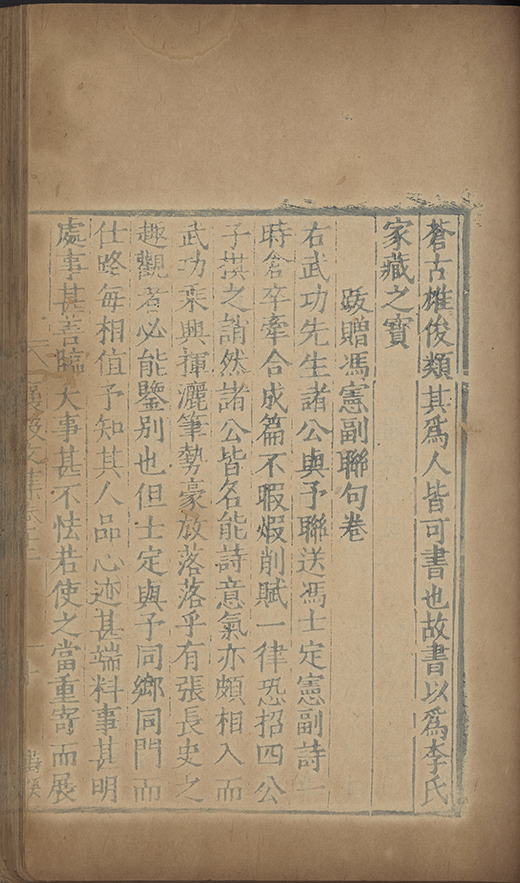 蒼古雄俊類其爲人皆可書也故書以爲李氏
家藏之寶
跋贈馮憲副聯句卷
右武功先生諸公與予聯送馮士定憲副詩一
時倉卒牽合成篇不暇煆削賦一律恐招四公
子撰之誚然諸公皆名能詩意氣亦頗相入而
武功乘興揮灑筆勢豪放落落乎有張長史之
趣觀者必能鑒別也但士定與予同鄉同門而
仕路每相值予知其人品心迹甚端料事甚明
處事甚善臨大事甚不怯若使之當重寄而展
襄毅文集卷之十二